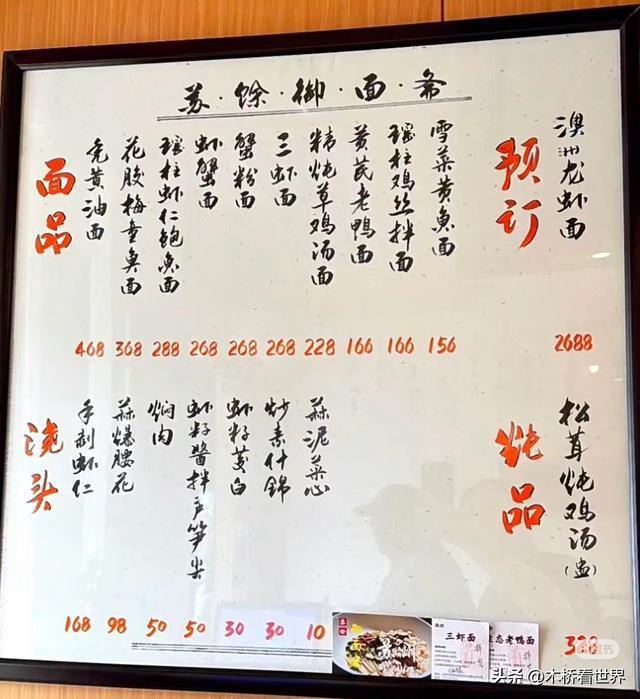 苏·馀·御·面·斋
面品
秃黄油面
花胶梅童魚面
瑶柱虾仁鲍魚面
虾蟹面
蟹粉面
三虾面
精炖草鸡汤面
黄芪老鸭面
瑶柱鸡丝拌面
雪菜黄魚面
468 368 288 268 268 268 228 166 166 156
预订
澳洲龙虾面
2688
浇头
手剥虾仁
蒜爆腰花
焖肉
虾籽醬拌芦笋尖
虾籽茭白
炒素什錦
蒜泥菜心
168 98 50 50 30 30 10
炖品
松茸炖鸡汤(盅)
三虾面
生态老鸭面
头条 @木桥看世界